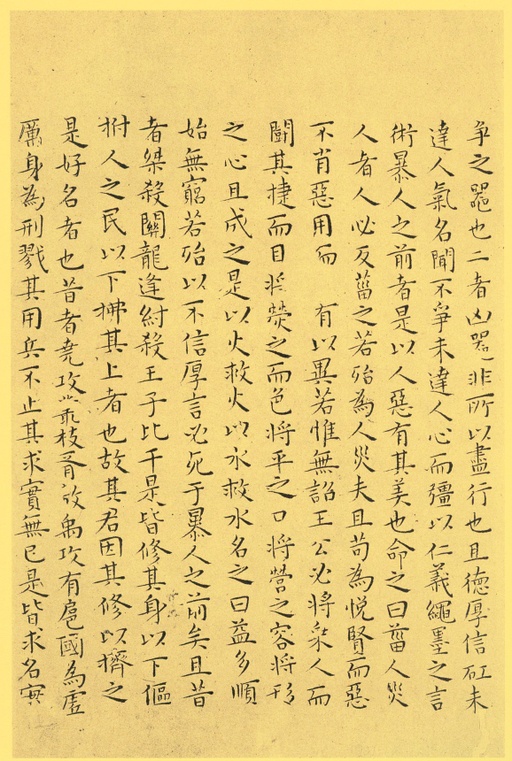 争之噐也二者凶器非所以盡行也且德厚信矼未
達人氣名聞不爭未達人心而彊以仁義繩墨之言
術暴人之前者是以人惡有其美也命之曰菑人災
人者人必反菑之若殆為人災夫且苟為悅賢而惡
不肖惡用而 有以異若惟無詔王公必將乗人而
鬭其捷而目将熒之而色將平之口將營之容將形
之心且成之是以火救火以水救水名之曰益多順
始無窮若殆以不信厚言必死于暴人之前矣且昔
者桀殺關龍逢紂殺王子比干是皆修其身以下傴
拊人之民以下拂其上者也故其君因其修以擠之
是好名者也昔者堯攻叢枝胥敖禹攻有扈國為虛
厲身為刑戮其用兵不止其求實無已是皆求名實